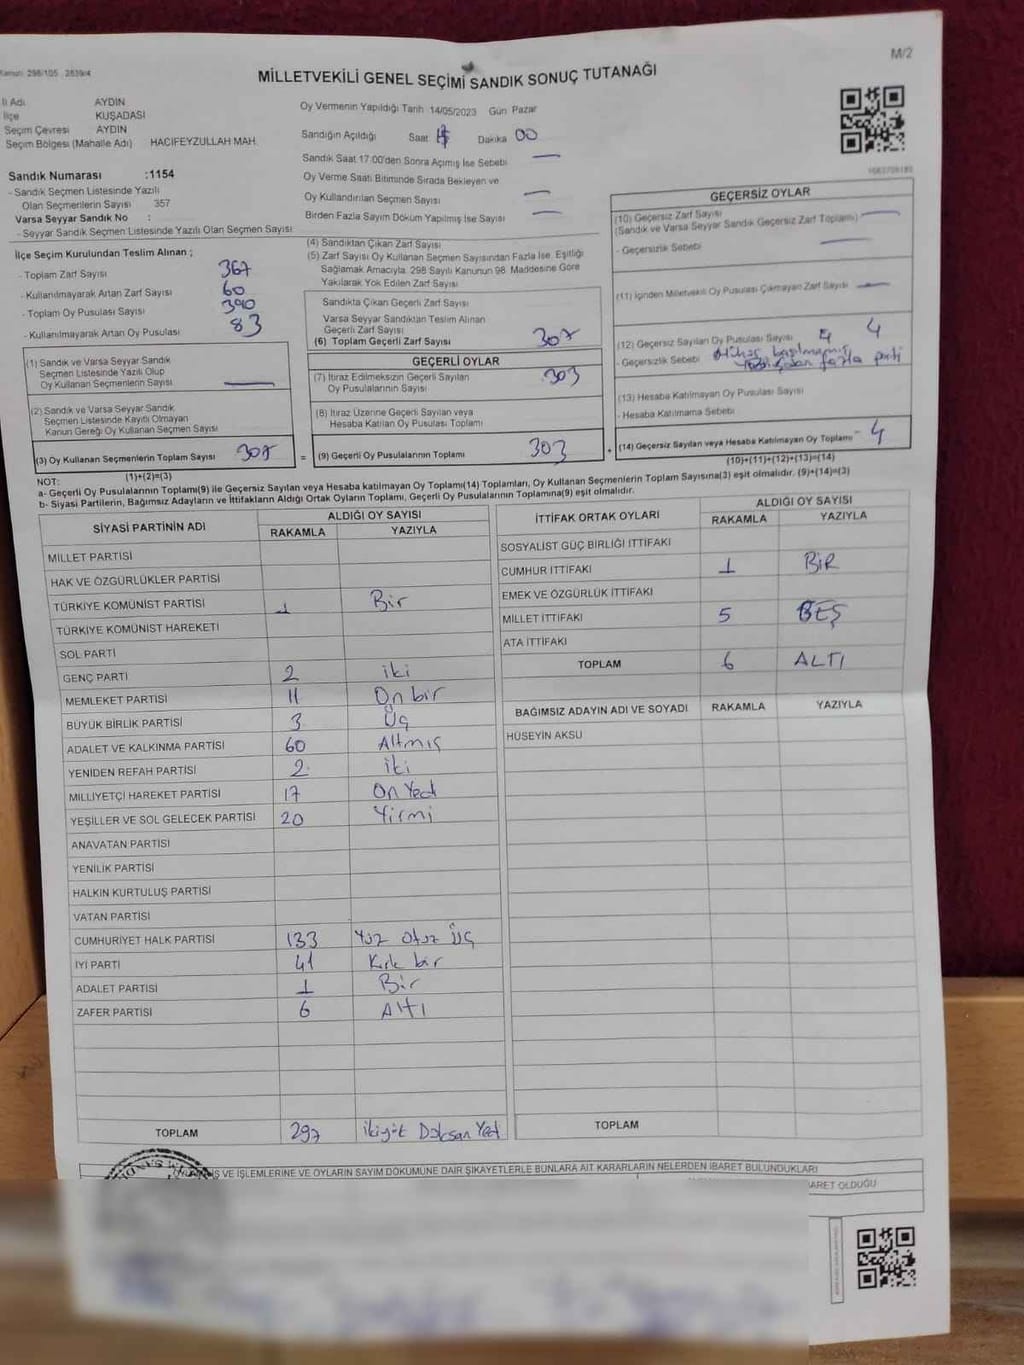 M/2
Kanun: 298/105 , 2839/4
MİLLETVEKİLİ GENEL SEÇİMİ SANDIK SONUÇ TUTANAĞI
İl Adı AYDIN
İlçe KUŞADASI
Seçim Çevresi AYDIN
Seçim Bölgesi (Mahalle Adı) HACIFEYZULLAH MAH.
Sandık Numarası :1154
- Sandık Seçmen Listesinde Yazılı
Olan Seçmenlerin Sayısı 357
Varsa Seyyar Sandık No :
- Seyyar Sandık Seçmen Listesinde Yazılı Olan Seçmen Sayısı
Oy Vermenin Yapıldığı Tarih 14/05/2023 Gün Pazar
Sandığın Açıldığı Saat Dakika 00
Sandık Saat 17.00'den Sonra Açılmış İse Sebebi —
Oy Verme Saati Bitiminde Sırada Bekleyen ve
Oy Kullandırılan Seçmen Sayısı —
Birden Fazla Sayım Döküm Yapılmış İse Sayısı —
İlçe Seçim Kurulundan Teslim Alınan ;
- Toplam Zarf Sayısı 367
- Kullanılmayarak Artan Zarf Sayısı 60
- Toplam Oy Pusulası Sayısı 390
- Kullanılmayarak Artan Oy Pusulası 83
(1) Sandık ve Varsa Seyyar Sandık
Seçmen Listesinde Yazılı Olup
Oy Kullanan Seçmenlerin Sayısı —
(2) Sandık ve Varsa Seyyar Sandık
Seçmen Listesinde Kayıtlı Olmayan
Kanun Gereği Oy Kullanan Seçmen Sayısı
(3) Oy Kullanan Seçmenlerin Toplam Sayısı 307
(1)+(2)=(3)
(4) Sandıktan Çıkan Zarf Sayısı
(5) Zarf Sayısı Oy Kullanan Seçmen Sayısından Fazla İse, Eşitliği
Sağlamak Amacıyla, 298 Sayılı Kanunun 98. Maddesine Göre
Yakılarak Yok Edilen Zarf Sayısı
Sandıkta Çıkan Geçerli Zarf Sayısı
Varsa Seyyar Sandıktan Teslim Alınan
Geçerli Zarf Sayısı
(6) Toplam Geçerli Zarf Sayısı 307
GEÇERLİ OYLAR
(7) İtiraz Edilmeksizin Geçerli Sayılan
Oy Pusulalarının Sayısı 303
(8) İtiraz Üzerine Geçerli Sayılan veya
Hesaba Katılan Oy Pusulası Toplamı
= (9) Geçerli Oy Pusulalarının Toplamı 303 +
GEÇERSİZ OYLAR
(10) Geçersiz Zarf Sayısı
(Sandık ve Varsa Seyyar Sandık Geçersiz Zarf Toplamı) —
- Geçersizlik Sebebi —
(11) İçinden Milletvekili Oy Pusulası Çıkmayan Zarf Sayısı —
(12) Geçersiz Sayılan Oy Pusulası Sayısı 4
- Geçersizlik Sebebi Mühür basılmamış
fazla parti
(13) Hesaba Katılmayan Oy Pusulası Sayısı
- Hesaba Katılmama Sebebi
(14) Geçersiz Sayılan veya Hesaba Katılmayan Oy Toplamı 4
(10)+(11)+(12)+(13)=(14)
NOT:
a- Geçerli Oy Pusulalarının Toplamı(9) ile Geçersiz Sayılan veya Hesaba Katılmayan Oy Toplamı(14) Toplamları, Oy Kullanan Seçmenlerin Toplam Sayısına(3) eşit olmalıdır. (9)+(14)=(3)
b- Siyasi Partilerin, Bağımsız Adayların ve İttifakların Aldığı Ortak Oyların Toplamı, Geçerli Oy Pusulalarının Toplamına(9) eşit olmalıdır.
SİYASİ PARTİNİN ADI ALDIĞI OY SAYISI
RAKAMLA YAZIYLA
MİLLET PARTİSİ
HAK VE ÖZGÜRLÜKLER PARTİSİ
TÜRKİYE KOMÜNİST PARTİSİ 1 Bir
TÜRKİYE KOMÜNİST HAREKETİ
SOL PARTİ
GENÇ PARTİ 2 iki
MEMLEKET PARTİSİ 11 On bir
BÜYÜK BİRLİK PARTİSİ 3 Üç
ADALET VE KALKINMA PARTİSİ 60 Altmış
YENİDEN REFAH PARTİSİ 2 iki
MİLLİYETÇİ HAREKET PARTİSİ 17 On Yedi
YEŞİLLER VE SOL GELECEK PARTİSİ 20 Yirmi
ANAVATAN PARTİSİ
YENİLİK PARTİSİ
HALKIN KURTULUŞ PARTİSİ
VATAN PARTİSİ
CUMHURİYET HALK PARTİSİ 133 Yüz Otuz Üç
İYİ PARTİ 41 Kırk bir
ADALET PARTİSİ 1 Bir
ZAFER PARTİSİ 6 Altı
TOPLAM 297 ikiyüz Doksan Yedi
İTTİFAK ORTAK OYLARI ALDIĞI OY SAYISI
RAKAMLA YAZIYLA
SOSYALİST GÜÇ BİRLİĞİ İTTİFAKI
CUMHUR İTTİFAKI 1 BİR
EMEK VE ÖZGÜRLÜK İTTİFAKI
MİLLET İTTİFAKI 5 BEŞ
ATA İTTİFAKI
TOPLAM 6 ALTI
BAĞIMSIZ ADAYIN ADI VE SOYADI RAKAMLA YAZIYLA
HÜSEYİN AKSU
TOPLAM
İŞ VE İŞLEMLERİNE VE OYLARIN SAYIM DÖKÜMÜNE DAİR ŞİKAYETLERLE BUNLARA AİT KARARLARIN NELERDEN İBARET BULUNDUKLARI
BARET OLDUĞU